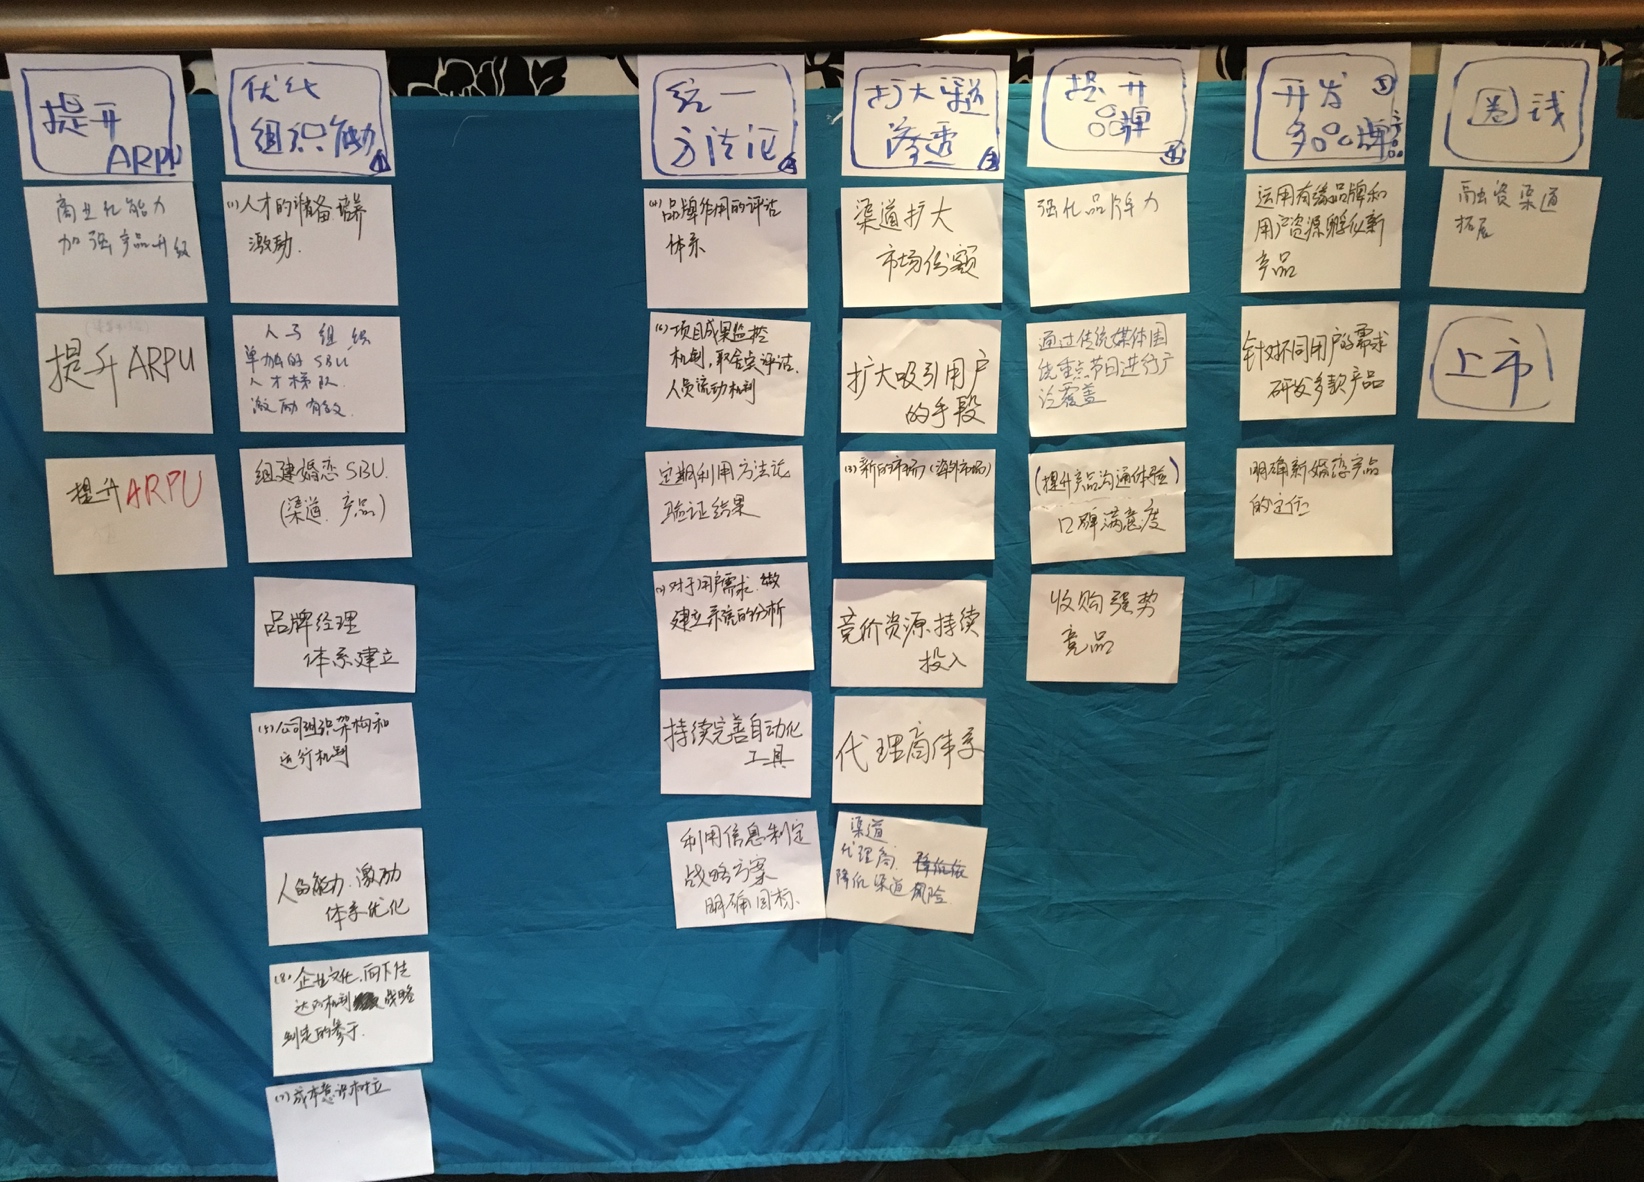 提升
ARPU
商业化能力
加强产品升级
提升ARPU
提升ARPU
优化
组织能力
(1)人才的准备培养
激励.
人才组织
单独的SBU
人才梯队.
激励有效.
组建婚恋SBU.
(渠道.产品)
品牌经理
体系建立
(5)公司组织架构和
运行机制
人的能力.激励
体系优化
(8)企业文化.向下传
达的机制 战略
制定的参于.
(7)成本意识树立
统一
方法论
品牌作用的评估
体系
(6)项目成果监控
机制,取舍定评估.
人员流动机制
定期利用方法论
验证结果
对于用户需求.做
建立系统的分析
持续完善自动化
工具
利用信息制定
战略方案
明确目标.
扩大渠道
渗透
渠道扩大
市场份额
扩大吸引用户
的手段
(3)新的市场(海外市场)
竞价资源.持续
投入
代理商体系
渠道
代理商.
降低渠道风险
提升
品牌
强化品牌力
通过传统媒体围
绕重点节日进行广
泛覆盖
(提升产品沟通体验)
口碑满意度
收购强势
竞品
开发
多品牌
运用有缘品牌和
用户资源孵化新
产品
针对不同用户的需求
研发多款产品
明确新婚恋产品
的定位
圈钱
融资渠道
拓展
上市